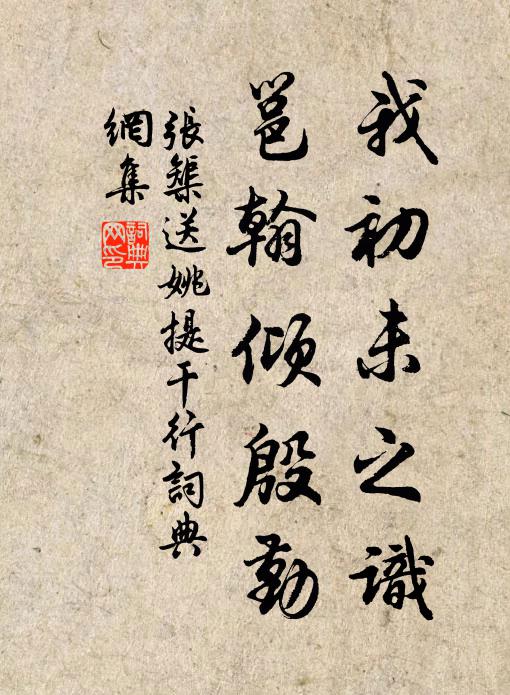 我初未之識
邕翰傾殷勤
張榘送姚提干行詞典
網集
詞典
网印